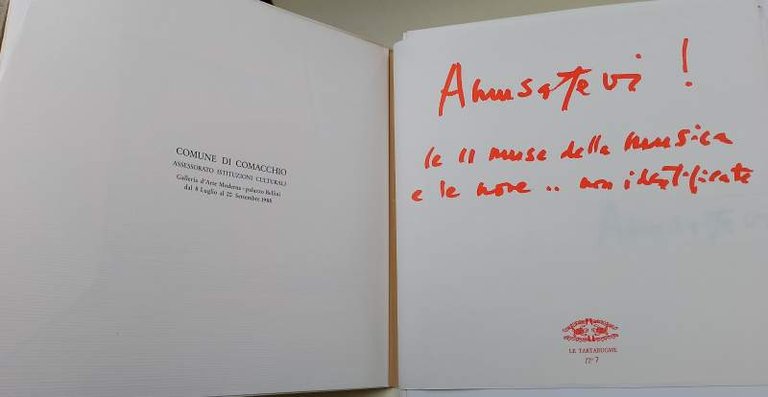 COMUNE DI COMACCHIO
ASSESSORATO ISTITUZIONI CULTURALI
Galleria d'Arte Moderna - palazzo Bellini
dal 8 Luglio al 20 Settembre 1988
Amusatevi !
le 11 muse della musica
e le nove .. non identificate
LE TARTARUGHE
n° 7